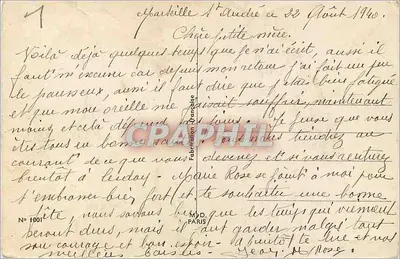 Marseille St André le 22 Août 1940.
Chère petite mère.
Voilà déjà quelques temps que je n'ai écrit, aussi il
faut m'excuser car depuis mon retour j'ai fait un peu
le paresseux, aussi il faut dire que j'étais bien fatigué
et que mon oreille me faisait souffrir, maintenant
moins et cela dépend des jours. Je pense que vous
êtes tous en bonne santé, vous nous tiendrez au
courant de ce que vous devenez et si vous rentrez
bientôt à Marie Rose se joint à moi pour
t'embrasser bien fort et te souhaiter une bonne
fête, nous savons que les temps qui viennent
seront durs, mais il faut garder malgré tout
son courage et bon espoir. à bientôt te lire et nos
meilleurs baisers. Jean M Rose.
CPARAMA
Fabrication Française
N° 1001
M.D.
PARIS